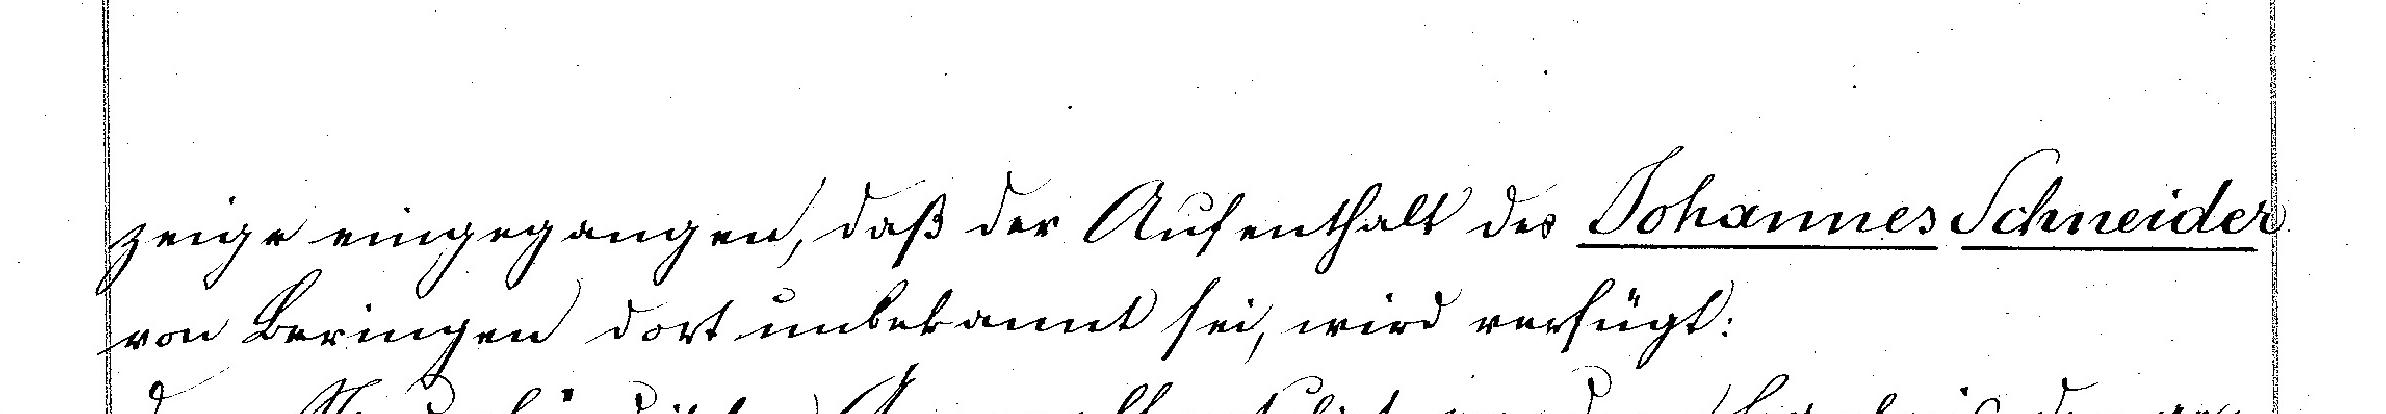 zeige eingegangen, daß der Aufenthalt des Johannes Schneider
von Beringen dort unbekannt sei, wird verfügt: